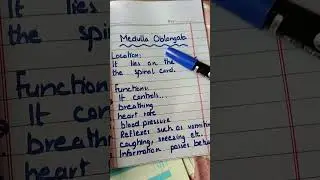 Medulla Oblongata
Location:
It lies on the
the spinal cord.
Functions:
It controls...
breathing
heart rate
blood pressure
Reflexes such as vomiting
coughing, sneezing etc.
Information passes between
Functi
It con
breathi
heart